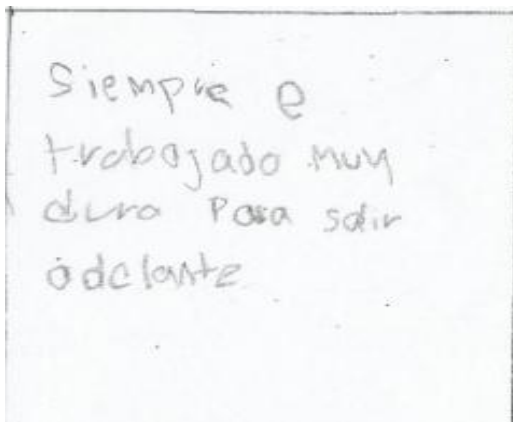 Siempre e
trabajado muy
duro para salir
adelante